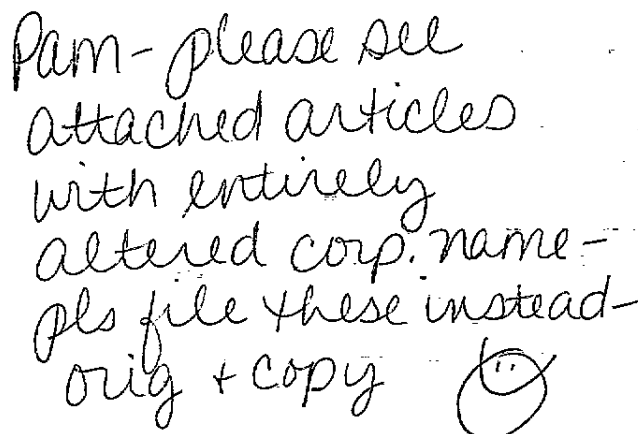 Pam - please see
attached articles
with entirely
altered corp. name -
pls file these instead -
orig + copy